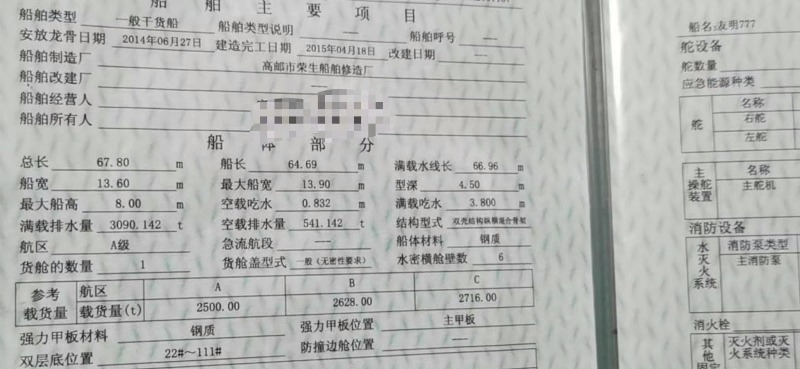 船舶主要项目
船舶类型 一般干货船 船舶类型说明 — 船舶呼号 —
安放龙骨日期 2014年06月27日 建造完工日期 2015年04月18日 改建日期 —
船舶制造厂 高邮市荣生船舶修造厂
船舶改建厂 —
船舶经营人
船舶所有人
船体部分
总长 67.80 m 船长 64.69 m 满载水线长 66.96 m
船宽 13.60 m 最大船宽 13.90 m 型深 4.50 m
最大船高 8.00 m 空载吃水 0.832 m 满载吃水 3.800 m
满载排水量 3090.142 t 空载排水量 541.142 t 结构型式 双壳结构纵横混合骨架
航区 A级 急流航段 — 船体材料 钢质
货舱的数量 1 货舱盖型式 一般(无密性要求) 水密横舱壁数 6
参考载货量 航区 A B C
载货量(t) 2500.00 2628.00 2716.00
强力甲板材料 钢质 强力甲板位置 主甲板
双层底位置 22#～111# 防撞边舱位置 —
船名:友明777
舵设备
舵数量
应急能源种类
舵 名称
右舵
左舵
主操舵装置 名称
主舵机
消防设备
水灭火系统 消防泵类型
主消防泵
消火栓
其他固定 灭火剂或灭火系统种类